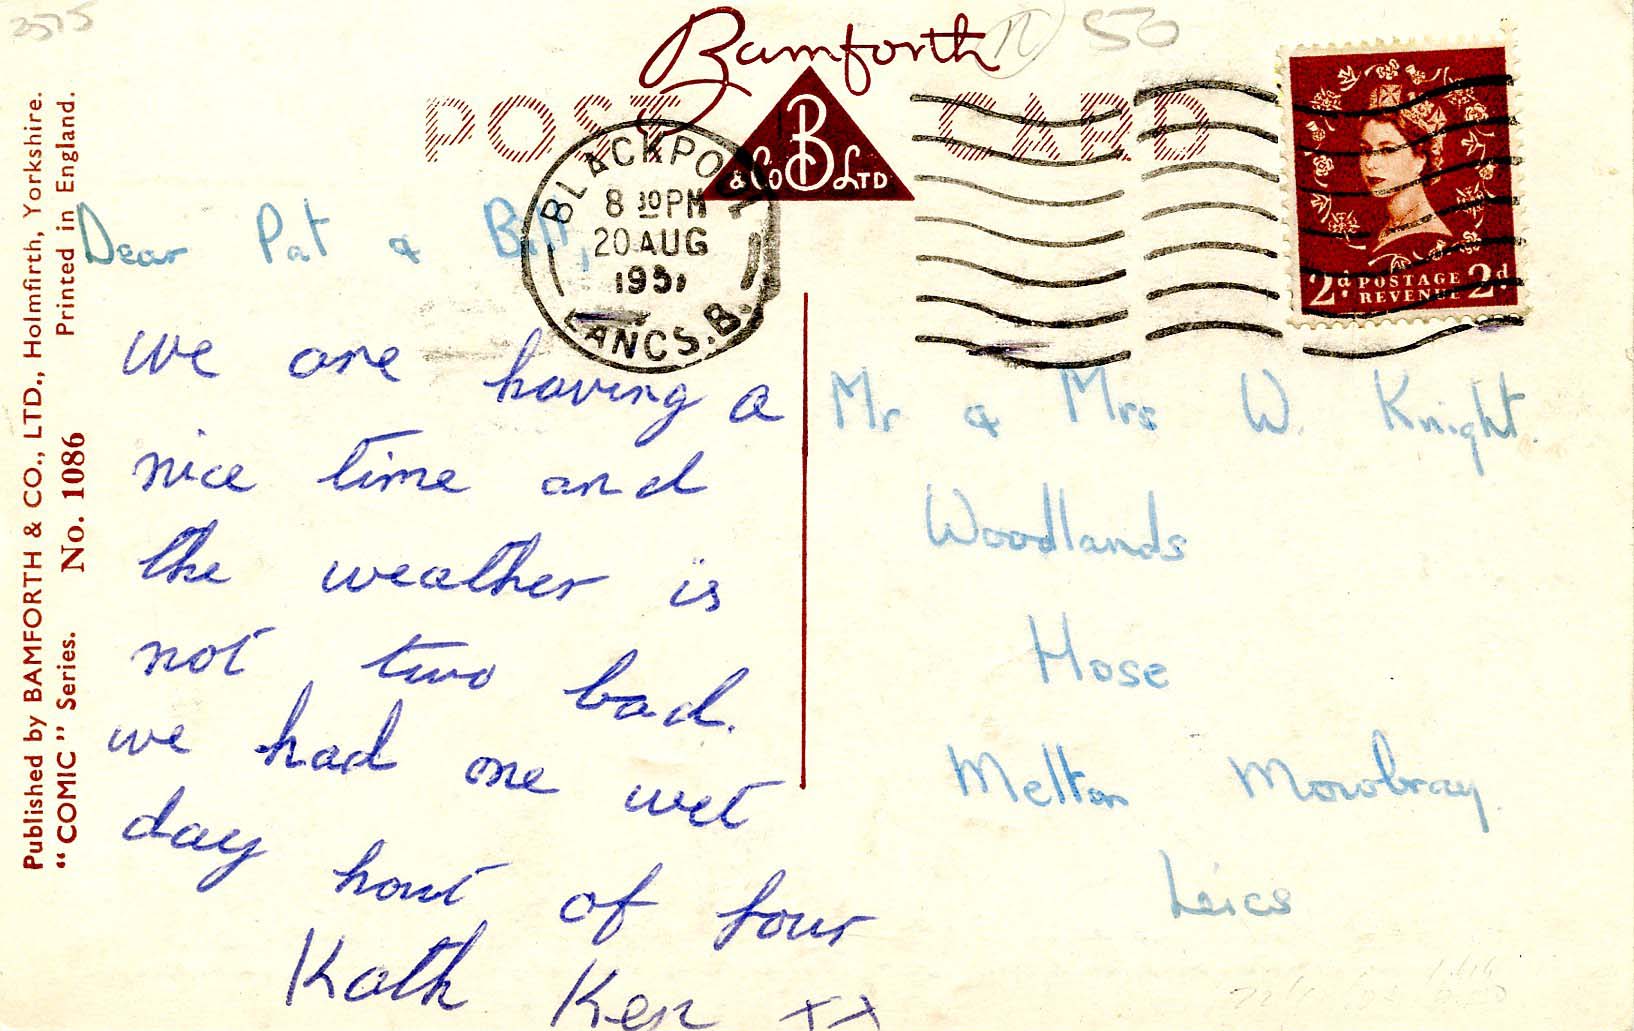 2575
Bamforth
50
POST CARD
B
& Co LTD
BLACKPOOL
8 30 PM
20 AUG
LANCS. B.
2d POSTAGE 2d
REVENUE
Published by BAMFORTH & CO., LTD., Holmfirth, Yorkshire.
"COMIC" Series. No. 1086 Printed in England.
Dear Pat & Bill,
we are having a
nice time and
the weather is
not two bad.
we had one wet
day hout of four
Kath Ken xx
Mr & Mrs W. Knight.
Woodlands
Hose
Melton Mowbray.
Leics